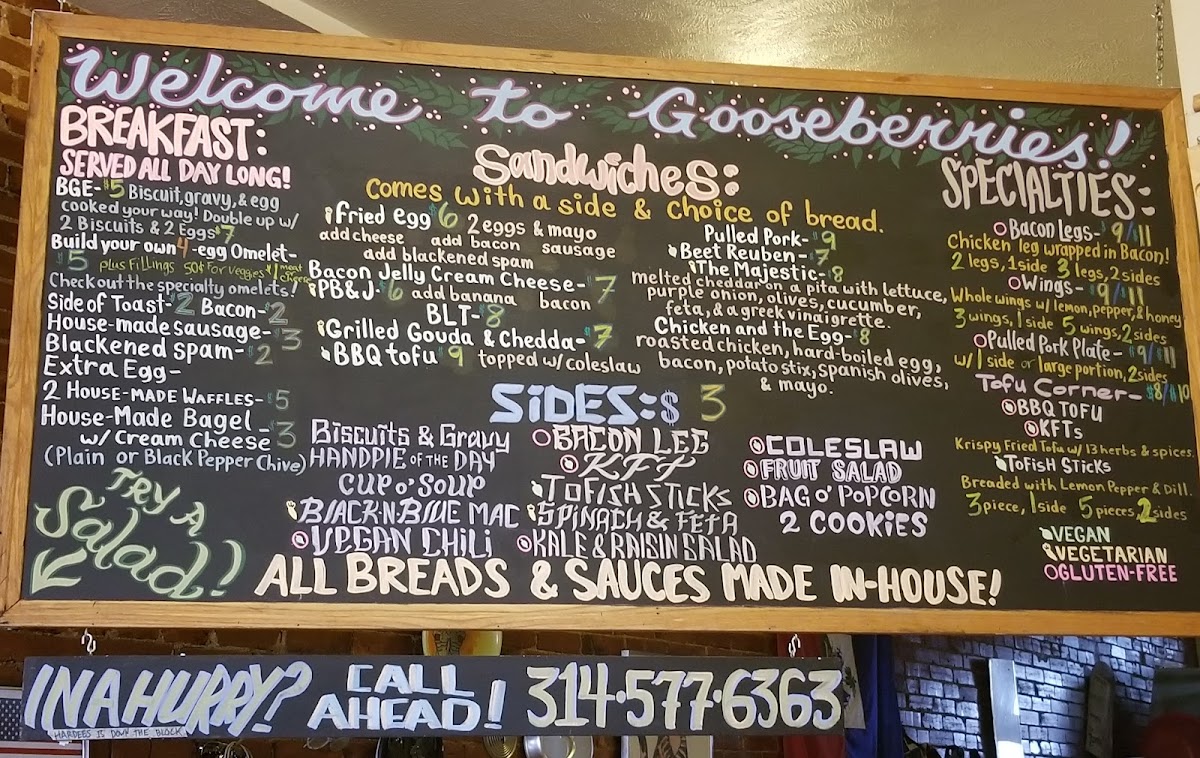 Welcome to Gooseberries!
BREAKFAST:
SERVED ALL DAY LONG!
BGE-$5 Biscuit, gravy, & egg
cooked your way! Double up w/
2 Biscuits & 2 Eggs $7
Build your own 4-egg Omelet-
$5 plus Fillings 50¢ for veggies $1 meat cheese
Check out the specialty omelets!
Side of Toast-$2 Bacon-$2
House-made sausage-$3
Blackened spam-$2
Extra Egg-
2 House-made Waffles-$5
House-Made Bagel
w/ Cream Cheese -$3
(Plain or Black Pepper Chive)
TRY A
Salad!
Sandwiches:
Comes with a side & choice of bread.
Fried egg $6 2 eggs & mayo
add cheese add bacon sausage
add blackened spam
Bacon Jelly Cream Cheese-$7
PB&J-$6 add banana bacon
BLT-$8
Grilled Gouda & Chedda-$7
BBQ tofu $9 topped w/ coleslaw
Pulled Pork-$9
Beet Reuben-$7
The Majestic-$8
melted cheddar on a pita with lettuce,
purple onion, olives, cucumber,
feta, & a greek vinaigrette.
Chicken and the Egg-$8
roasted chicken, hard-boiled egg,
bacon, potato stix, spanish olives,
& mayo.
SIDES:$3
Biscuits & Gravy
HANDPIE OF THE DAY
CUP O' SOUP
BLACK N BLUE MAC
VEGAN CHILI
BACON LEG
KFT
TOFISH STICKS
SPINACH & FETA
KALE & RAISIN SALAD
COLESLAW
FRUIT SALAD
BAG O' POPCORN
2 COOKIES
ALL BREADS & SAUCES MADE IN-HOUSE!
SPECIALTIES:
Bacon Legs-$9/$11
Chicken leg wrapped in Bacon!
2 legs, 1 side 3 legs, 2 sides
Wings-$9/$11
Whole wings w/ lemon, pepper, & honey
3 wings, 1 side 5 wings, 2 sides
Pulled Pork Plate-$9/$11
w/ 1 side or large portion, 2 sides
Tofu Corner-$8/$10
BBQ TOFU
KFTs
Krispy Fried Tofu w/ 13 herbs & spices.
Tofish Sticks
Breaded with Lemon Pepper & Dill.
3 piece, 1 side 5 pieces, 2 sides
VEGAN
VEGETARIAN
GLUTEN-FREE
IN A HURRY?
HARDEES IS DOWN THE BLOCK
CALL
AHEAD!
314·577·6363